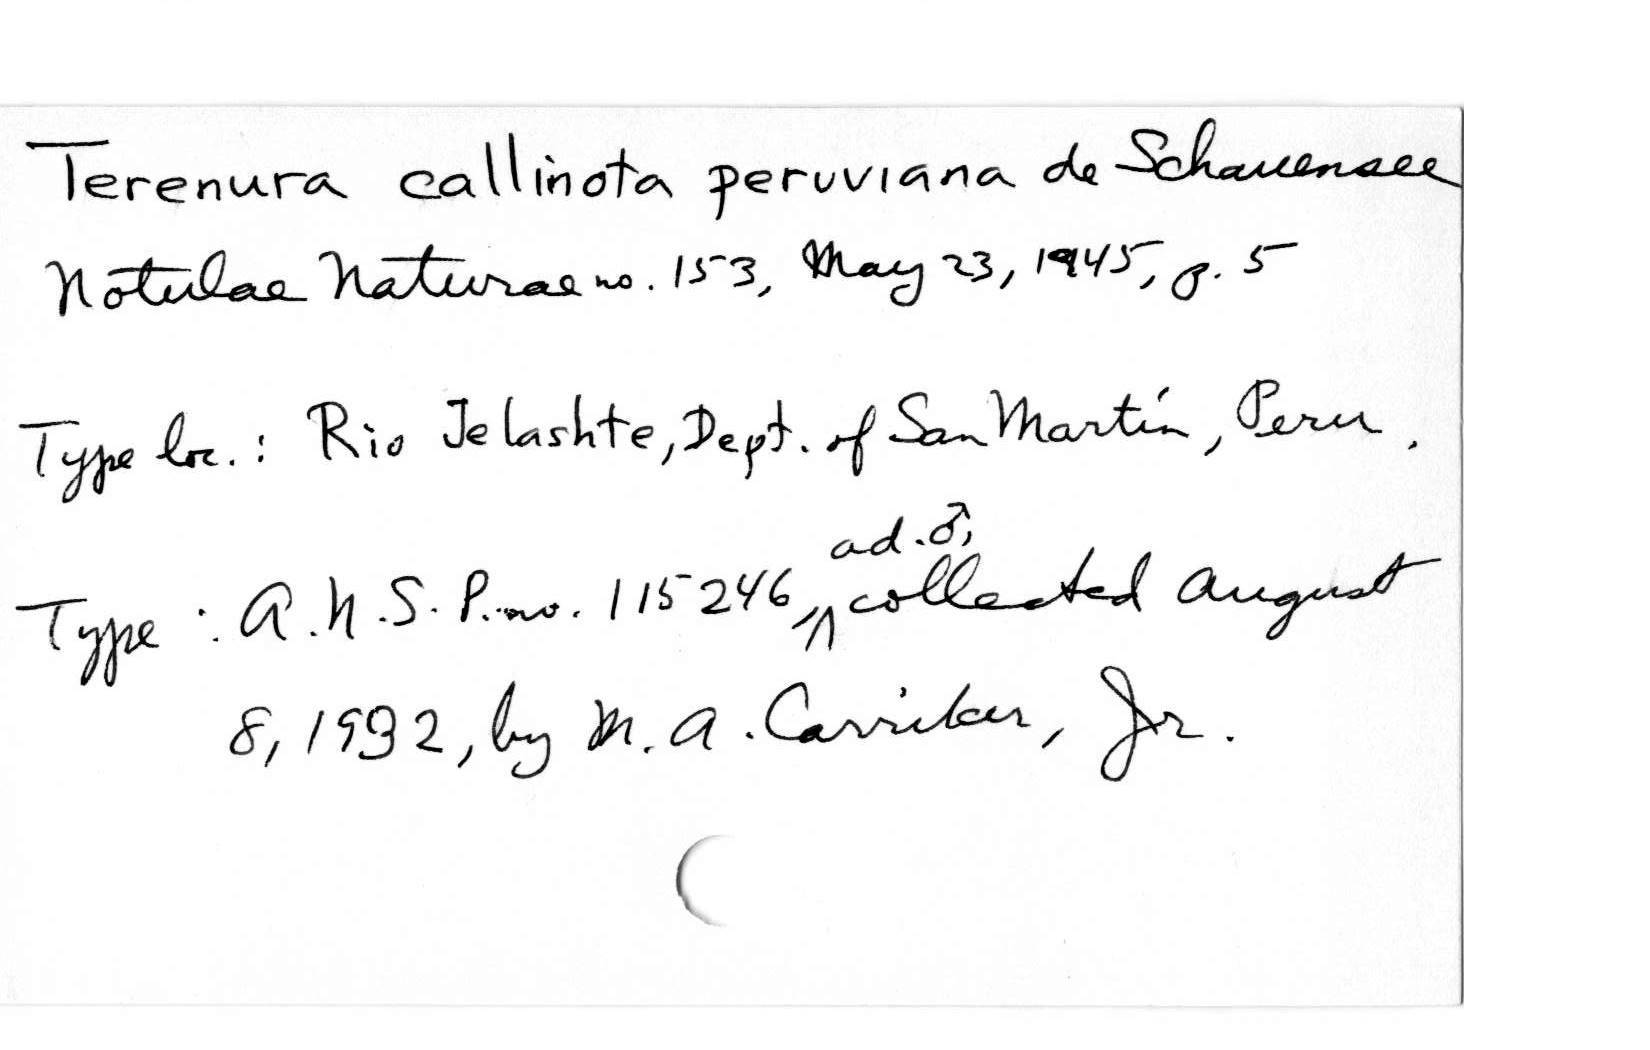 Terenura callinota peruviana de Schauensee
Notulae Naturae no. 153, May 23, 1945, p. 5
Type loc.: Rio Jelashte, Dept. of San Martín, Peru.
ad. ♂,
Type: A.N.S.P. no. 115246, collected August
8, 1932, by M. A. Carriker, Jr.